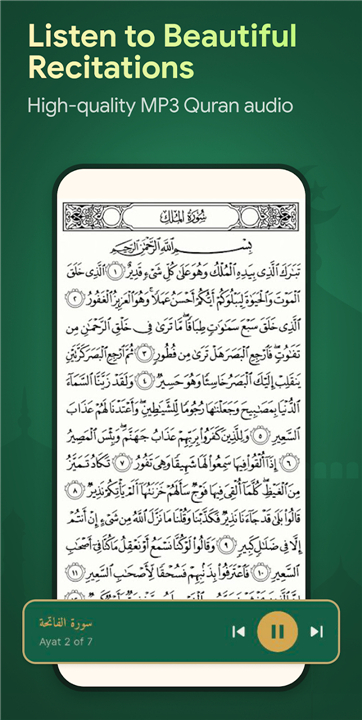 Listen to Beautiful
Recitations
High-quality MP3 Quran audio
سُورَةُ المُلْك
بِسْمِ اللَّهِ الرَّحْمَٰنِ الرَّحِيمِ
تَبَٰرَكَ ٱلَّذِي بِيَدِهِ ٱلْمُلْكُ وَهُوَ عَلَىٰ كُلِّ شَيْءٍ قَدِيرٌ ١ ٱلَّذِي خَلَقَ
ٱلْمَوْتَ وَٱلْحَيَوٰةَ لِيَبْلُوَكُمْ أَيُّكُمْ أَحْسَنُ عَمَلًا وَهُوَ ٱلْعَزِيزُ ٱلْغَفُورُ ٢
ٱلَّذِي خَلَقَ سَبْعَ سَمَٰوَٰتٍ طِبَاقًا مَّا تَرَىٰ فِي خَلْقِ ٱلرَّحْمَٰنِ مِن
تَفَٰوُتٍ فَٱرْجِعِ ٱلْبَصَرَ هَلْ تَرَىٰ مِن فُطُورٍ ٣ ثُمَّ ٱرْجِعِ ٱلْبَصَرَ كَرَّتَيْنِ
يَنقَلِبْ إِلَيْكَ ٱلْبَصَرُ خَاسِئًا وَهُوَ حَسِيرٌ ٤ وَلَقَدْ زَيَّنَّا ٱلسَّمَآءَ
ٱلدُّنْيَا بِمَصَٰبِيحَ وَجَعَلْنَٰهَا رُجُومًا لِّلشَّيَٰطِينِ وَأَعْتَدْنَا لَهُمْ عَذَابَ
ٱلسَّعِيرِ ٥ وَلِلَّذِينَ كَفَرُوا۟ بِرَبِّهِمْ عَذَابُ جَهَنَّمَ وَبِئْسَ ٱلْمَصِيرُ
٦ إِذَآ أُلْقُوا۟ فِيهَا سَمِعُوا۟ لَهَا شَهِيقًا وَهِيَ تَفُورُ ٧ تَكَادُ تَمَيَّزُ
مِنَ ٱلْغَيْظِ كُلَّمَآ أُلْقِيَ فِيهَا فَوْجٌ سَأَلَهُمْ خَزَنَتُهَآ أَلَمْ يَأْتِكُمْ نَذِيرٌ ٨
قَالُوا۟ بَلَىٰ قَدْ جَآءَنَا نَذِيرٌ فَكَذَّبْنَا وَقُلْنَا مَا نَزَّلَ ٱللَّهُ مِن شَيْءٍ إِنْ أَنتُمْ
إِلَّا فِي ضَلَٰلٍ كَبِيرٍ ٩ وَقَالُوا۟ لَوْ كُنَّا نَسْمَعُ أَوْ نَعْقِلُ مَا كُنَّا فِيٓ أَصْحَٰبِ
ٱلسَّعِيرِ ١٠ فَٱعْتَرَفُوا۟ بِذَنۢبِهِمْ فَسُحْقًا لِّأَصْحَٰبِ ٱلسَّعِيرِ ١١
سورة الفاتحة
Ayat 2 of 7